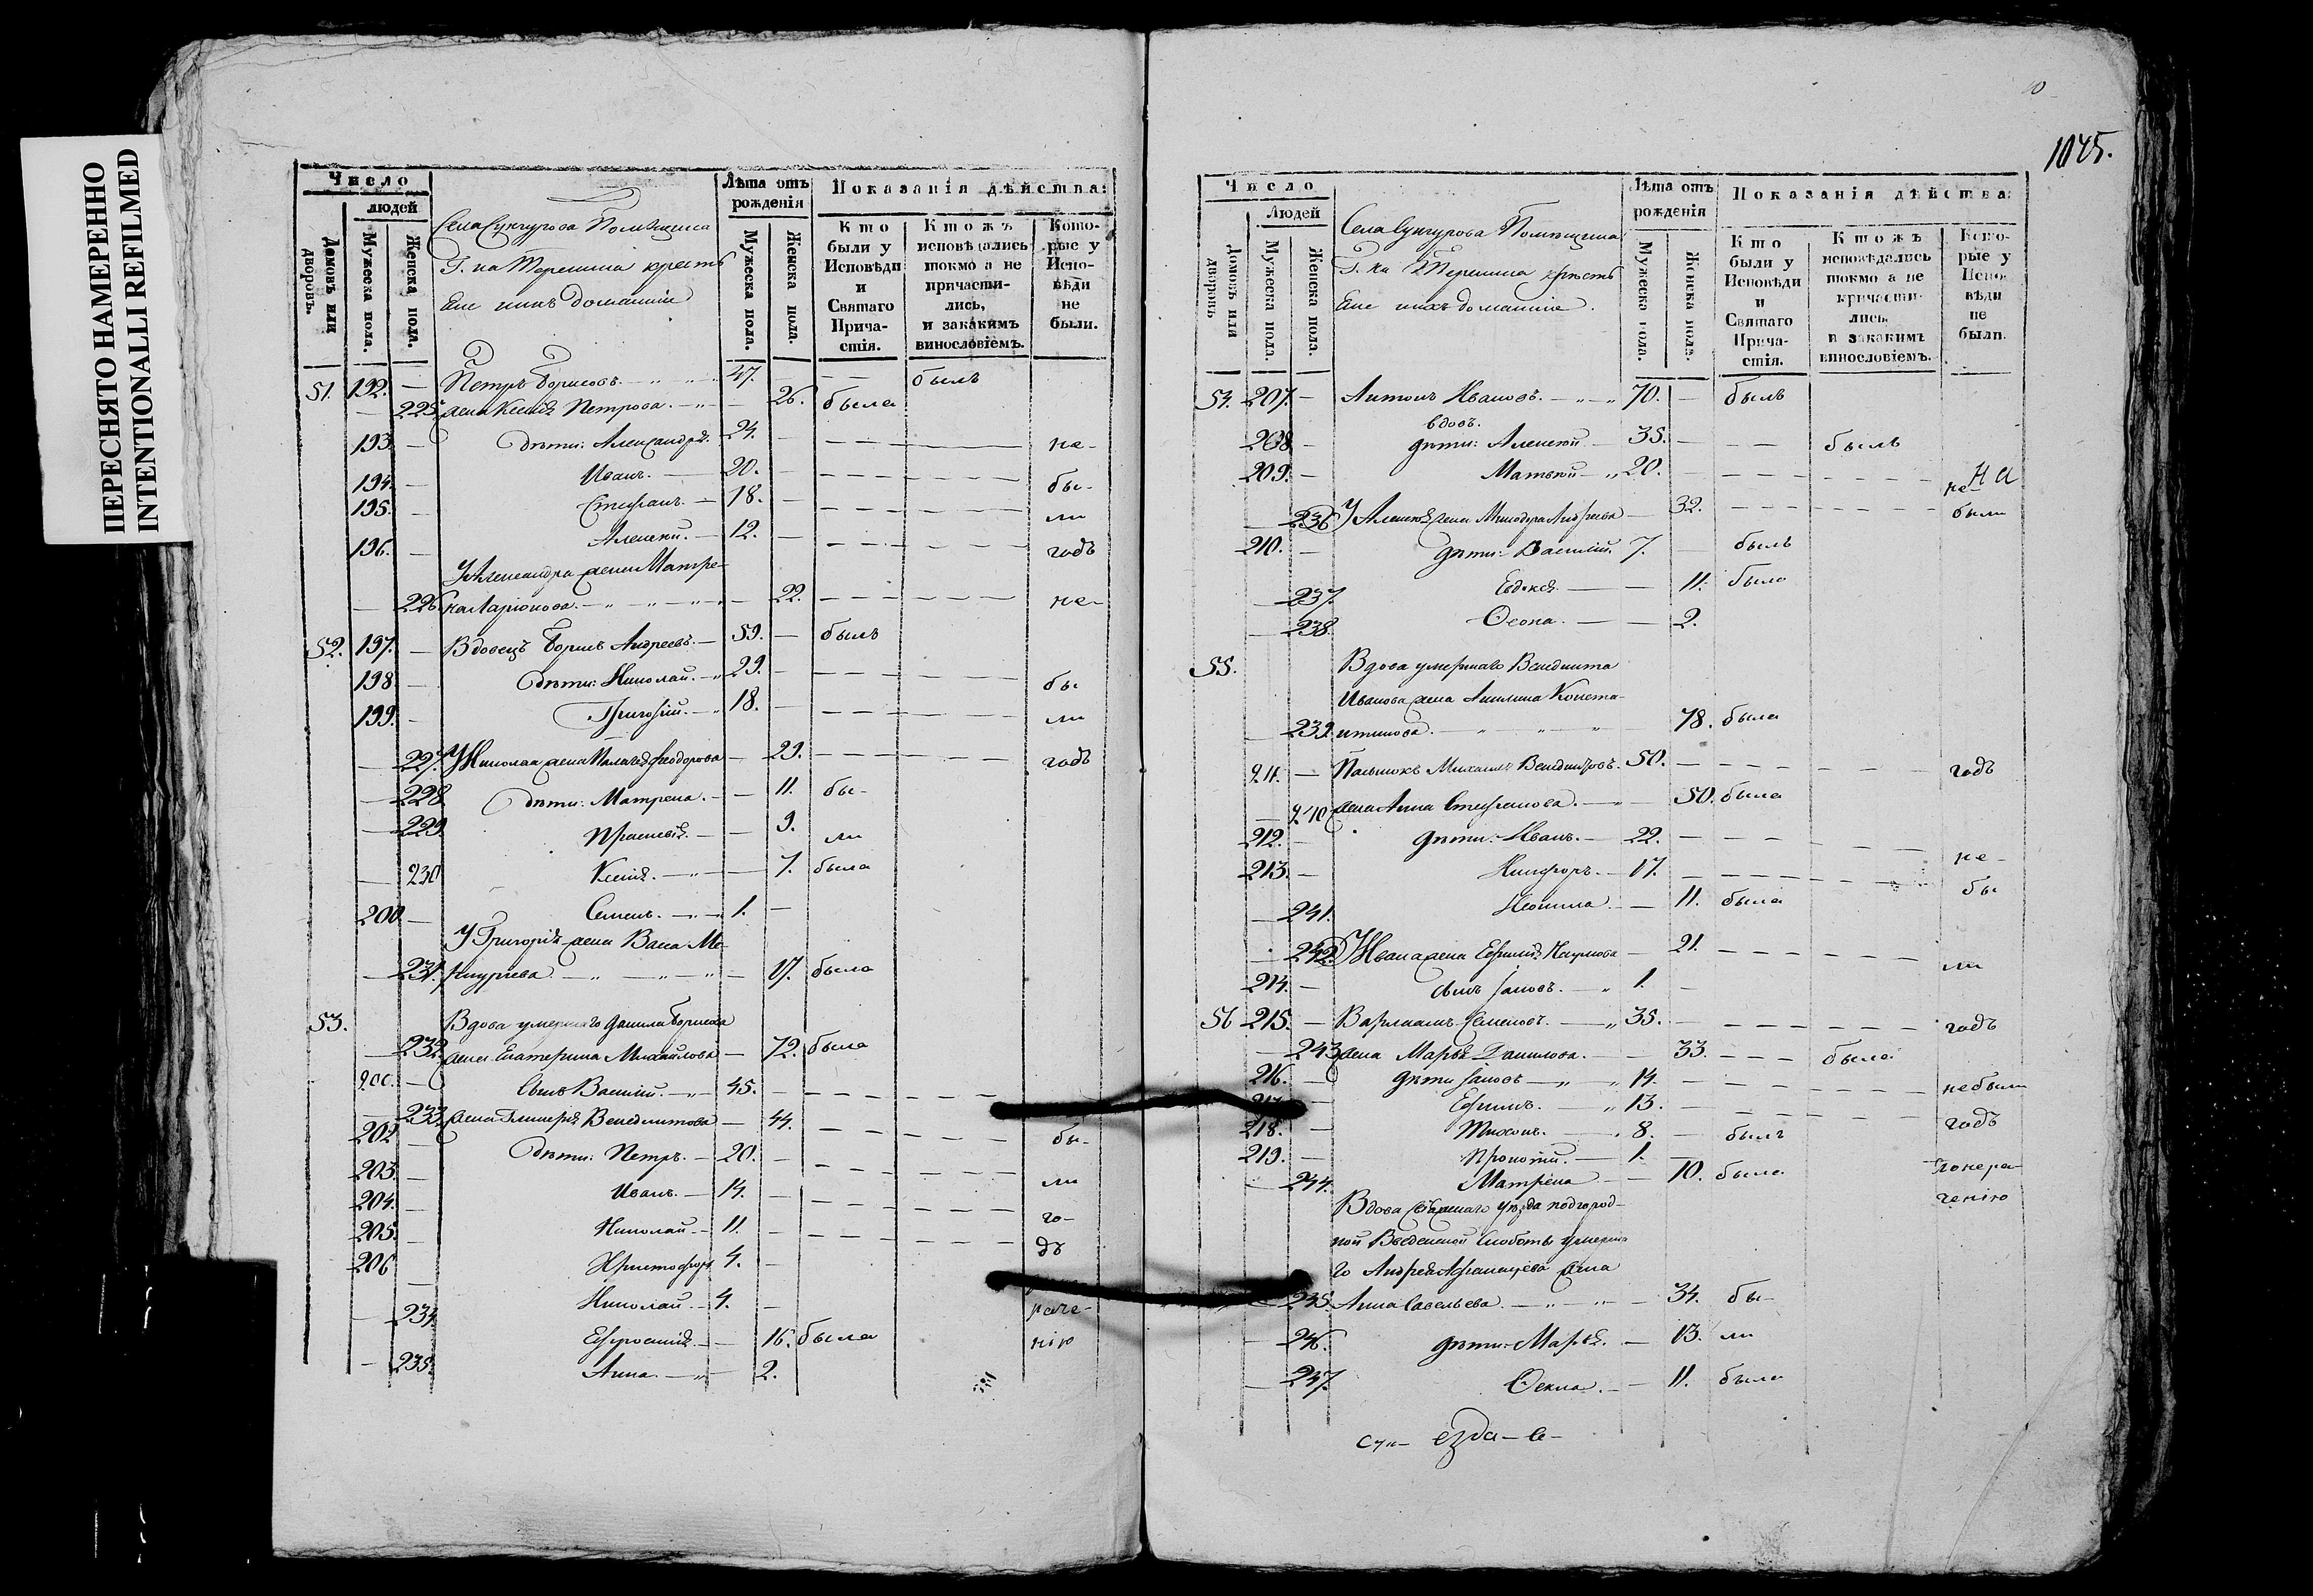 ПЕРЕСНЯТО НАМЕРЕННО
INTENTIONALLI REFILMED
Число
людей
Домовъ или дворовъ.
Мужеска пола.
Женска пола.
Села Сунгурова Помѣщика
Г. на Терешина кресть
Еие ихъ домашніе
Лѣта отъ рожденія
Мужеска пола.
Женска пола.
Показанія дѣйства:
Кто были у Исповѣди и Святаго Прича-стія.
Ктожъ исповѣдались токмо а не причасти-лись, и закакимъ винословіемъ.
Кото-рые у Испо-вѣди не были.
51. 192. — Петръ Борисовъ. 47. — — былъ
— 225 жена Ксенія Петрова. — 26. была
193. — дѣти: Александръ. 24. — не-
194. — Иванъ. 20. — бы-
195. — Стефанъ. 18. — ли
196. — Алексѣй. 12. — годъ
У Александра жена Матре-
— 226 на Ларіонова. — 22. не-
52. 197. — Вдовецъ Борисъ Андреевъ. 59. — былъ
198. — дѣти: Николай. 29. — бы-
199. — Григорій. 18. — ли
— 227. У Николая жена Малачія Феодорова — 29. годъ
— 228. дѣти: Матрена. — 11. бы-
— 229. Праскевія. — 9. ли
— 230 Ксенія. — 7. была
200. — Семенъ. 1. —
У Григорія жена Васса Ме-
— 231. ркурьева — 17. была
53. Вдова умершаго Данила Борисова
— 232. жена Екатерина Михайлова — 72. была
200. — сынъ Василій. 45. —
— 233. жена Гликерія Венедиктова — 44.
202 — дѣти: Петръ. 20. — бы-
203. — Иванъ. 14. — ли
204. — Николай 11. — го-
205. — Христофоръ 4. — дъ
206 — Николай. 4. — раче-
— 234. Ефросинія. — 16. была нію
— 235. Анна. — 2.
1045.
Число
Людей
Домовъ или дворовъ
Мужеска пола.
Женска пола.
Села Сунгурова Помѣщика
Г. на Терешина кресть
Еие ихъ домашніе.
Лѣта отъ рожденія
Мужеска пола.
Женска пола.
Показанія дѣйства:
Кто были у Исповѣди и Святаго Прича-стія.
Ктожъ исповѣдались токмо а не причасти-лись. и закакимъ винословіемъ.
Кото-рые у Испо-вѣди не были.
54. 207. — Антонъ Ивановъ. 70. — былъ
вдовъ.
208. — дѣти: Алексѣй 35. — — былъ
209. — Матвѣй 20. — не
— 236 У Алексѣя жена Минодора Андреева — 32. были
210. — дѣти: Василій. 7. — былъ
— 237. Евдокія. — 11. была
— 238. Ѳеона. — 2.
55. Вдова умершаго Венедикта
Иванова жена Акилина Конста-
— 239. нтинова. — 78. была
211. — Пасынокъ Михаилъ Венедиктовъ. 50. — годъ
— 240 жена Анна Стефанова. — 50. была
212. — дѣти: Иванъ. 22. —
213. — Никифоръ. 17. — не-
— 241. Неонила. — 11. была бы
242. У Ивана жена Ефимія Наумова — 21. ли
214. — сынъ Іаковъ. 1. —
56 215. — Варлаамъ Семеновъ. 35. — годъ
— 243 жена Марья Данилова. — 33. — была
216. — дѣти Іаковъ 14. — небыли
217. — Ефимъ. 13. — годъ
218. — Тихонъ. 8. — былъ
219. — Прокопій. 1. —
— 244. Матрена — 10. была понера-
ченію
Вдова Сызранскаго уѣзда подгород-
ной Введенской слободы умерша-
го Андрея Афанасьева жена
— 245. Анна Савельева. — 34. бы-
— 246. дѣти: Марья. — 13. ли
— 247. Ѳекла. — 11. была